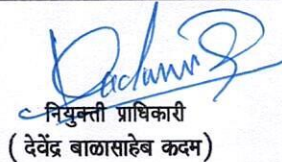 नियुक्ती प्राधिकारी
( देवेंद्र बाळासाहेब कदम)